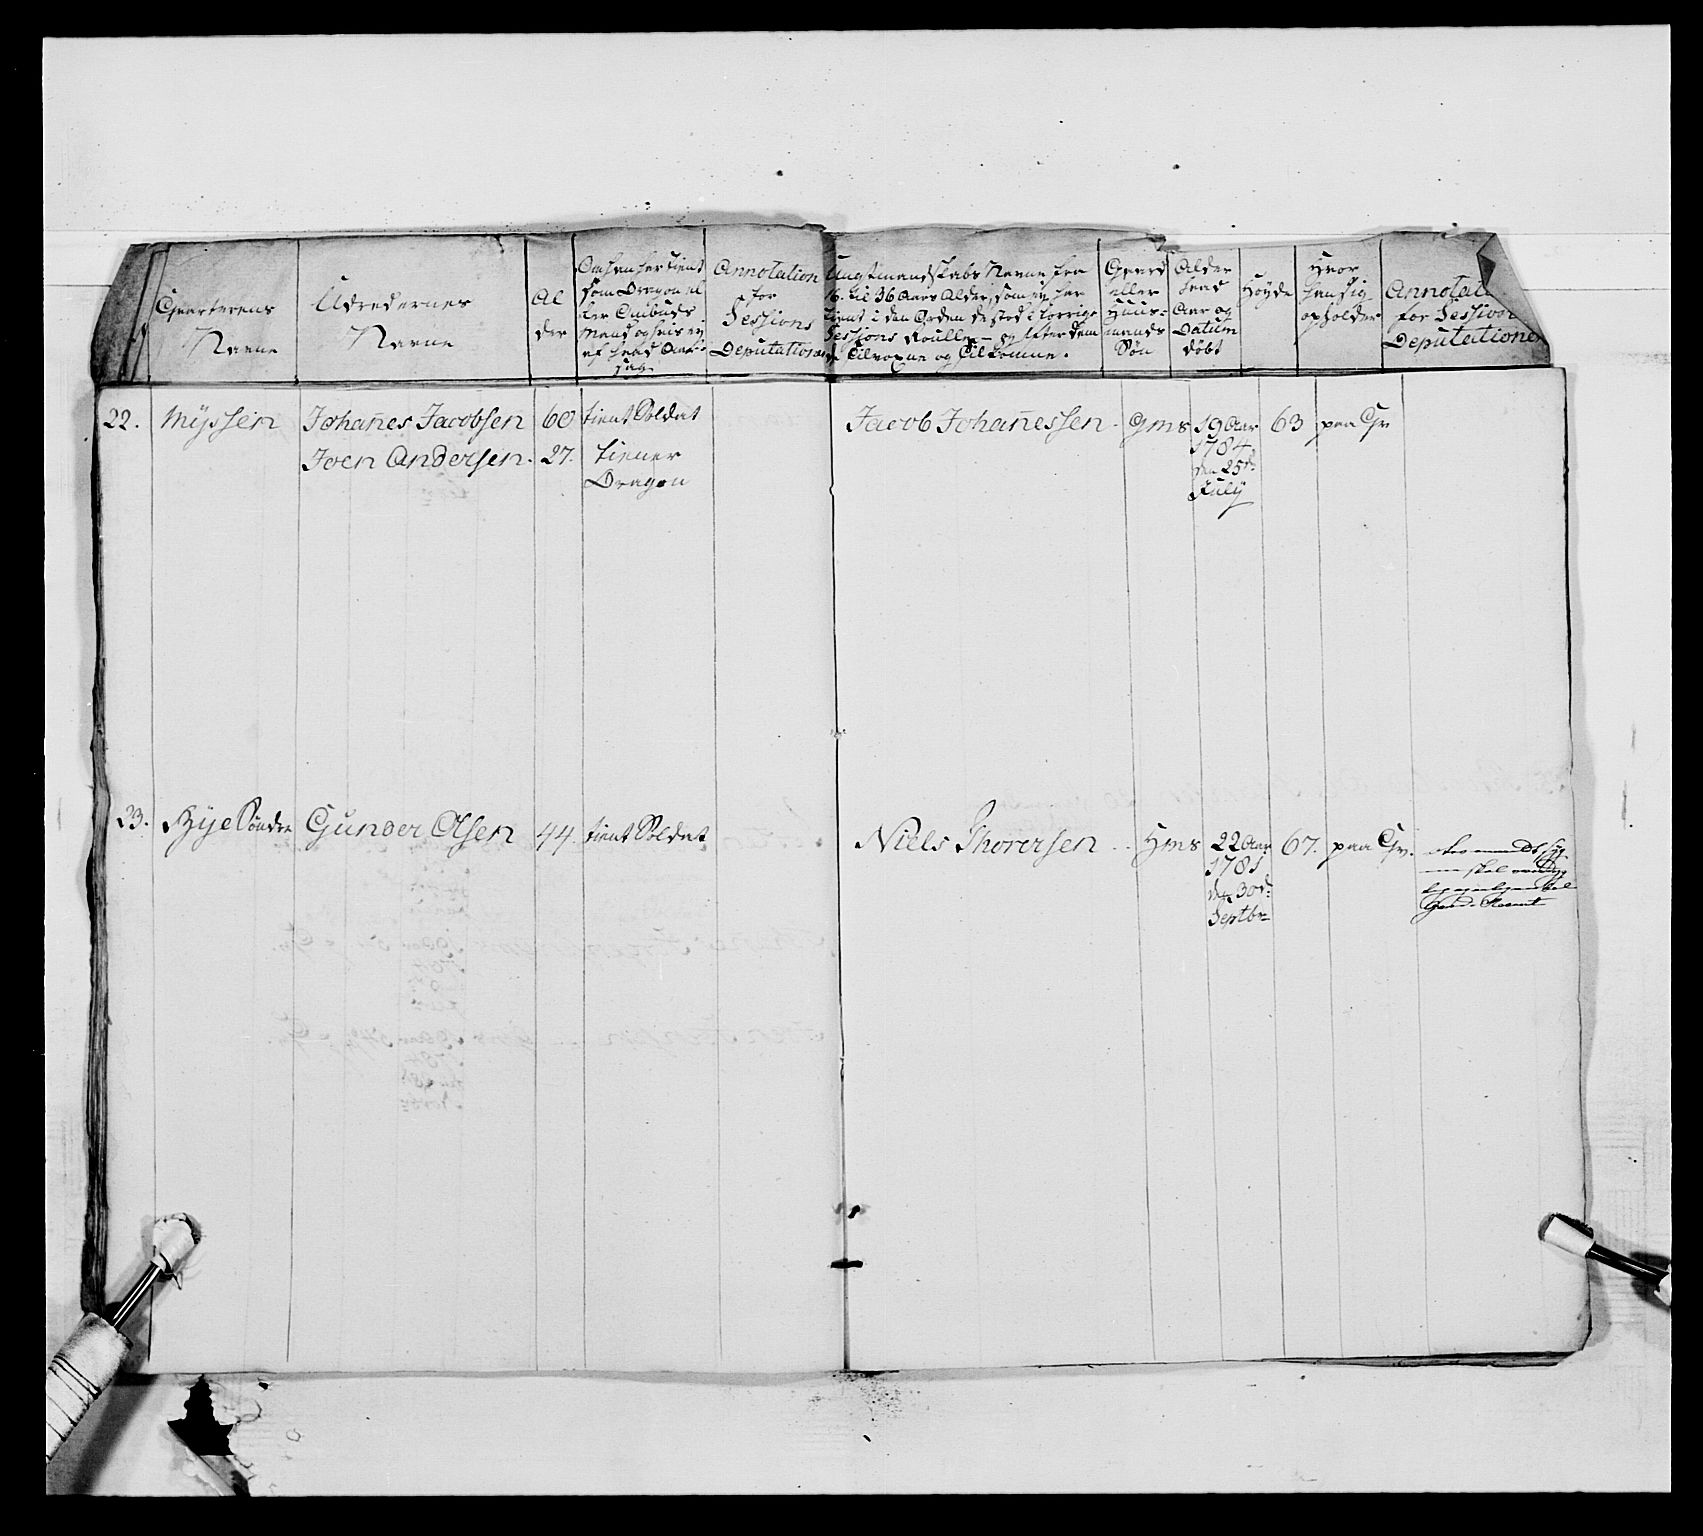 Qvarterens
Navne
Udredernes
Navne
Al
der
Om han har tient
som Dragon el
ler Ombuds
Mand og hvis ey
af hvad Aar-
sag
Annotation
for
Sessions
Deputationen
Ungt mandskabs Navne fra
16. til 36 Aars Alder, som ey har
tient i den Orden de stod i forrige
Sessions Roulle - og efter dem
de Tilvoxne og Tilkomne.
Gaard
eller
Huus-
mands
Søn
Alder
hvad
Aar og
Datum
døbt
Høyde
Hvor
han sig
opholder
Annotati
for Session
Deputationen
22. Myssen Johannes Jacobsen 60 tient Soldat Jacob Johannessen. Gms 19 Aar 63 paa Gr
1784
den 25d.
July
Joen Andersen. 27. tiener
Dragon
23. Rye Søndre Gunder Olsen 44. tient Soldat Niels Thorersen Hms 22 Aar 67. paa Gr.
1781
den 30d.
Septbr
skal